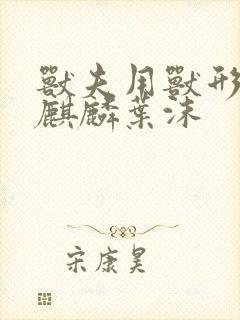 獸夫用獸形
麒麟葉沫
宋康昊